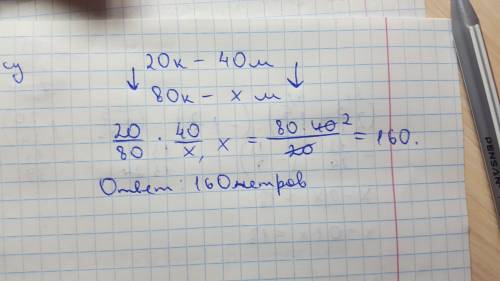 су
20к - 40м
↓ ↓
80к - х м
20/80 · 40/х, х = 80·40 2/20 = 160.
Ответ 160метров
PENSAN